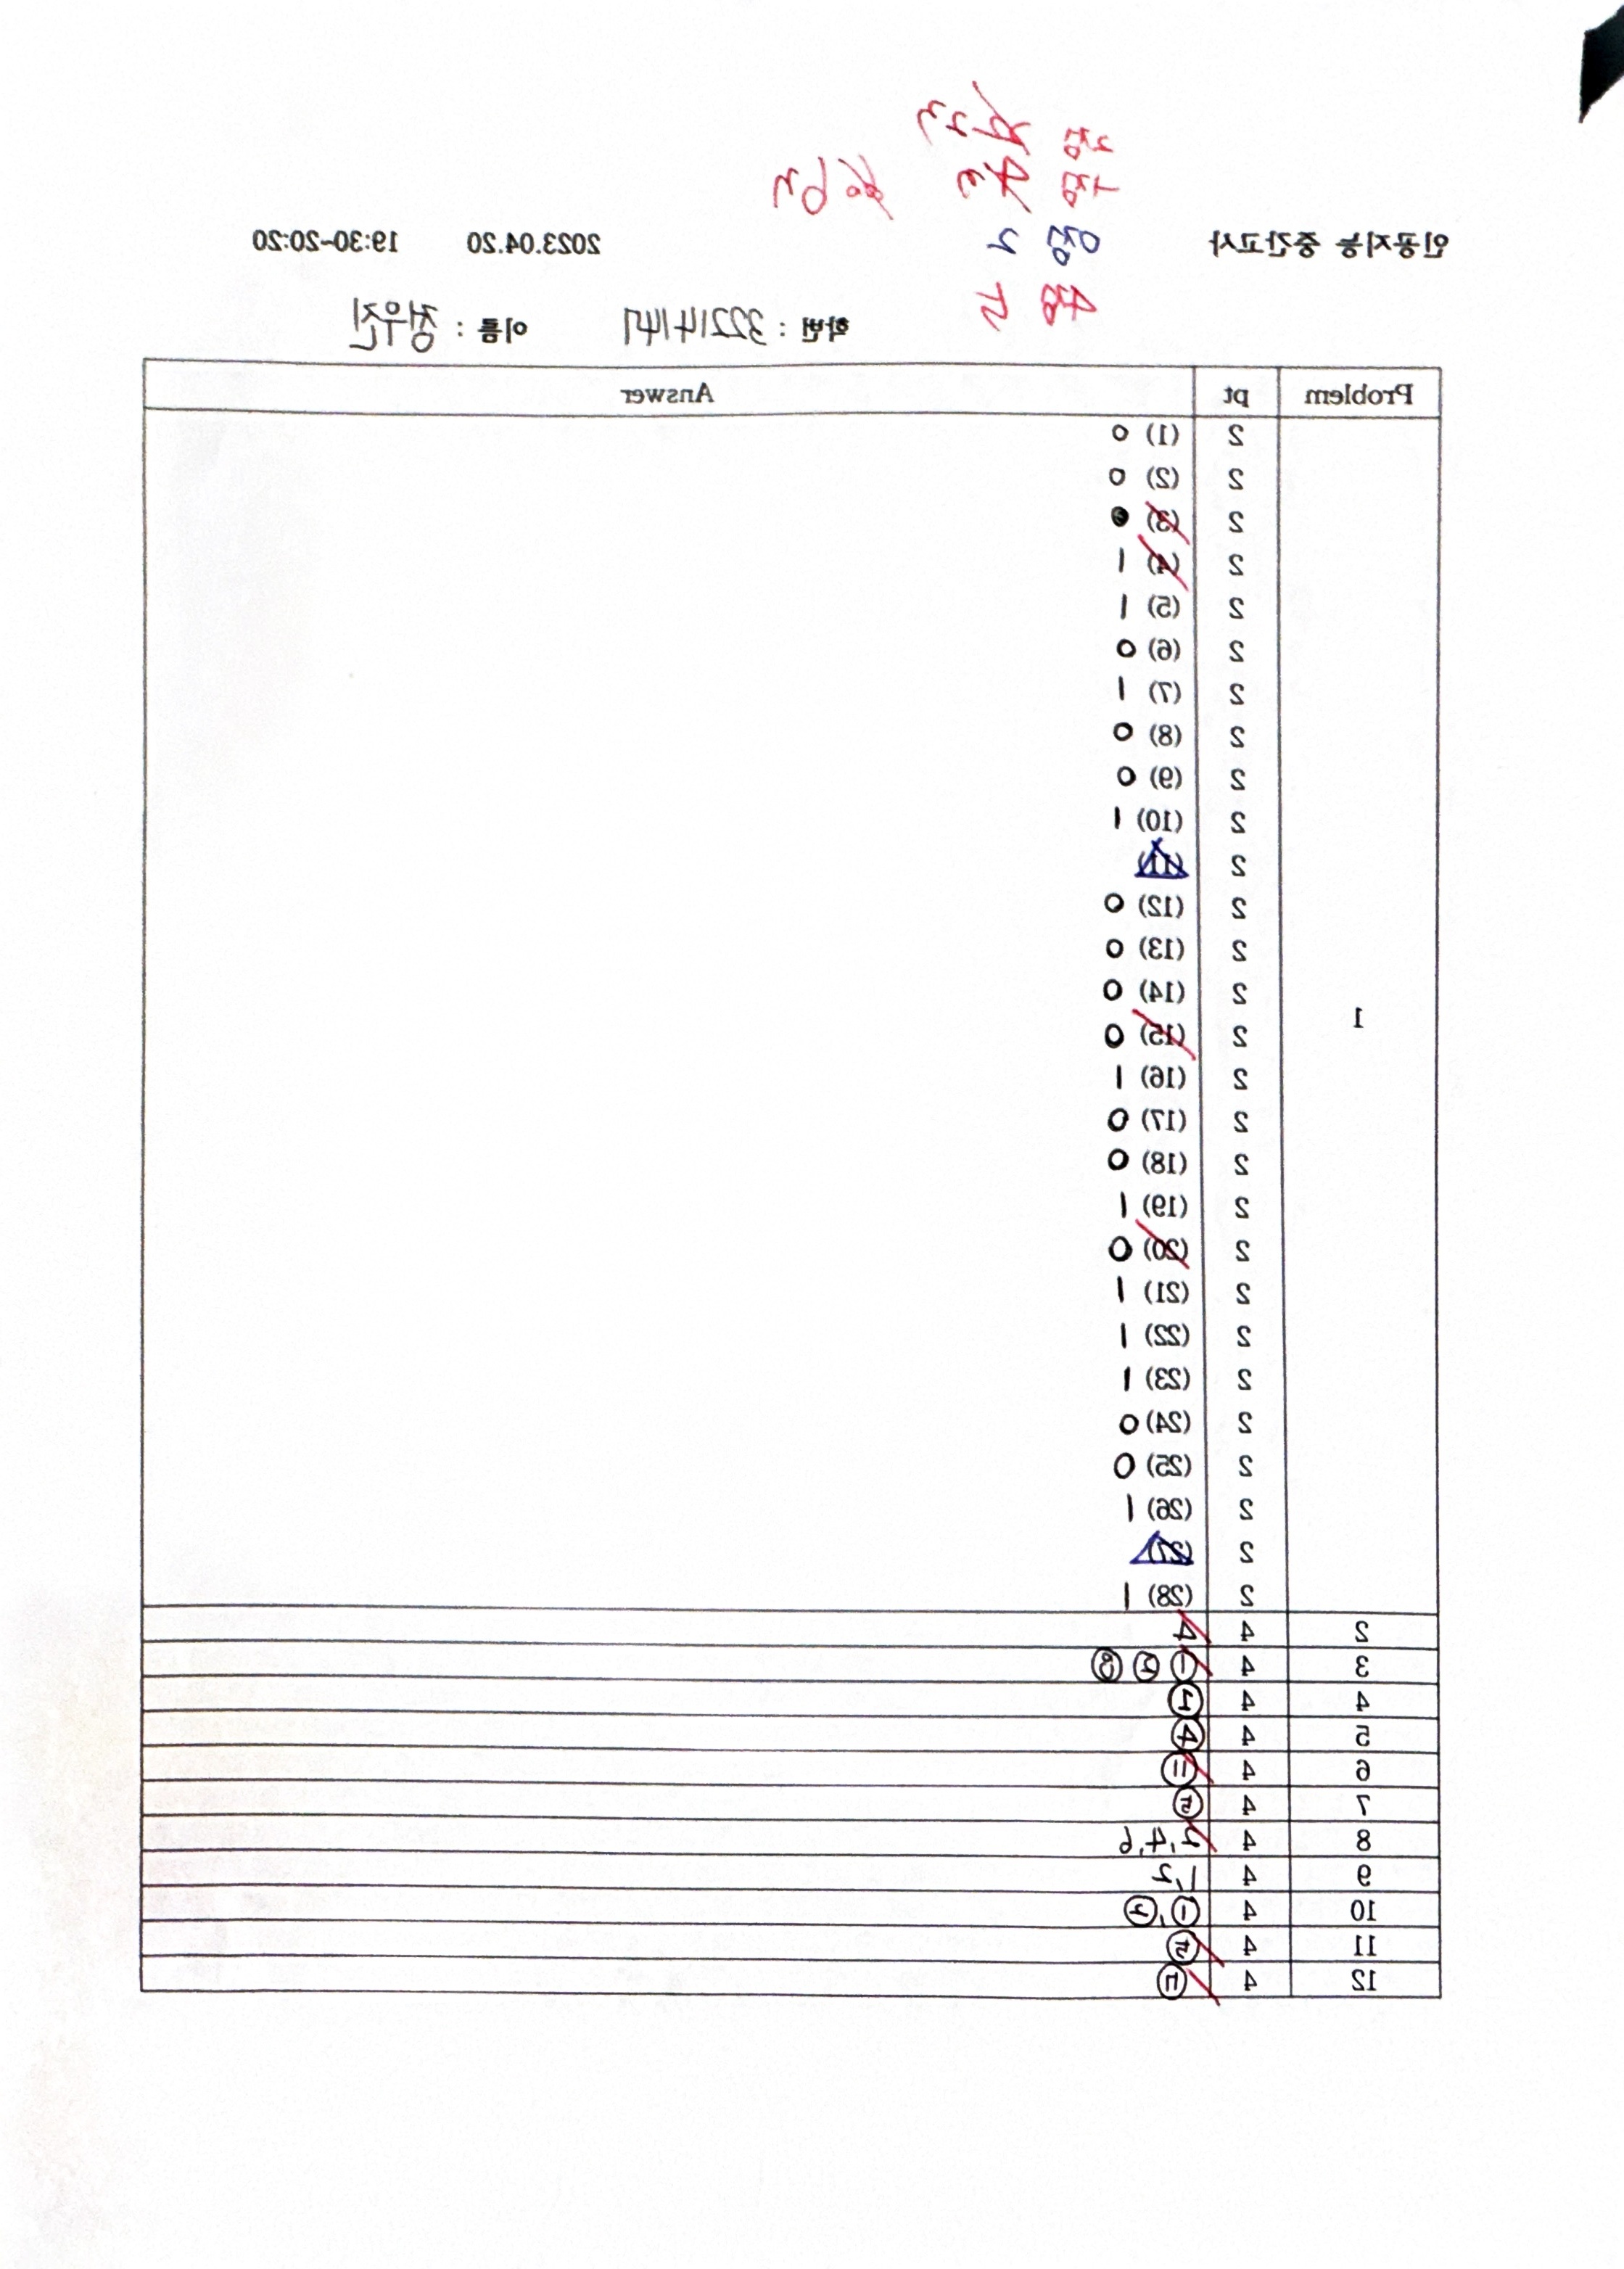 인공지능 중간고사 2023.04.20 19:30~20:20
학번 : 32214147 이름 : 정우진
Problem pt Answer
1
2 (1) 0
2 (2) 0
2 (3)
2 (4) 1
2 (5) 1
2 (6) 0
2 (7) 1
2 (8) 0
2 (9) 0
2 (10) 1
2 (11)
2 (12) 0
2 (13) 0
2 (14) 0
2 (15) 0
2 (16) 1
2 (17) 0
2 (18) 0
2 (19) 1
2 (20) 0
2 (21) 1
2 (22) 1
2 (23) 1
2 (24) 0
2 (25) 0
2 (26) 1
2 (27)
2 (28) 1
2 4 4
3 4 ① ⑤ ⑧
4 4
5 4 ④
6 4 ⑪
7 4 ⑤
8 4 2,4,6
9 4 1,2
10 4 ①,
11 4
12 4